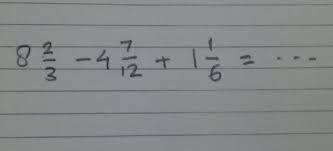 8 2/3 - 4 7/12 + 1 1/6 = ...